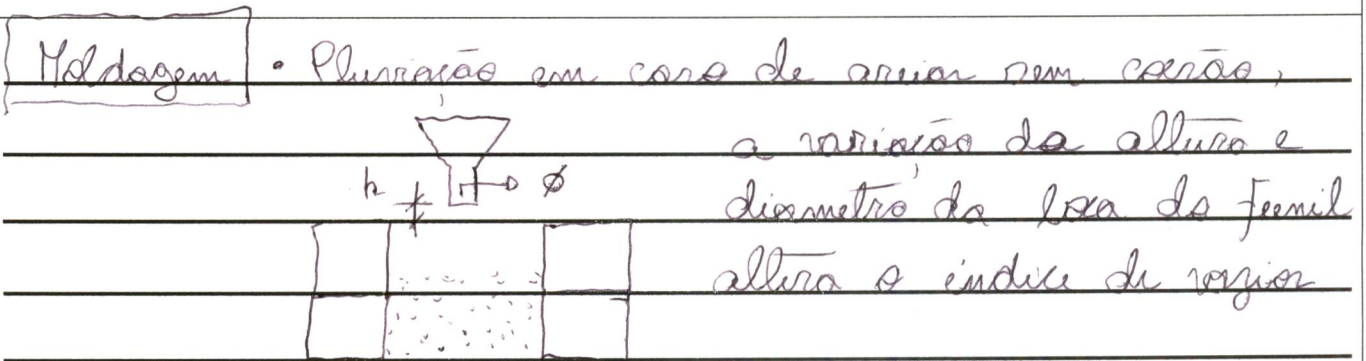 Moldagem • Pluviação em caso de areias sem coesão,
a variação da altura e
h ø diametro da boca do funil
altera o índice de vazios